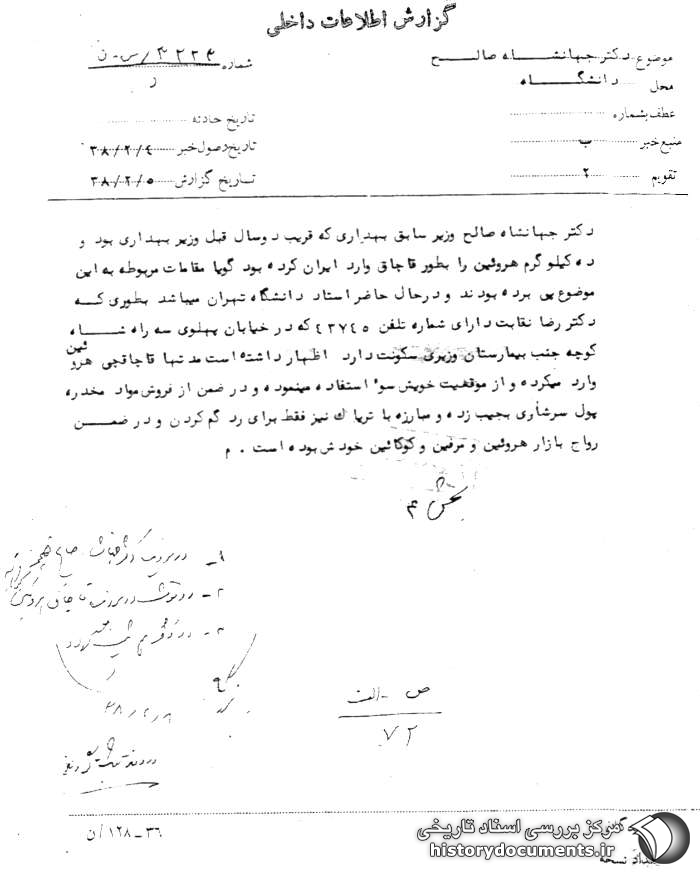 گزارش اطلاعات داخلی
موضوع دکتر جهانشاه صالح
محل دانشگاه
عطف بشماره
منبع خبر ب
تقویم ۲
شماره ۳۲۲۴/س-ن
ر
تاریخ حادثه
تاریخ وصول خبر ۳۸/۲/۴
تاریخ گزارش ۳۸/۲/۵
دکتر جهانشاه صالح وزیر سابق بهداری که قریب دوسال قبل وزیر بهداری بود و
ده کیلوگرم هروئین را بطور قاچاق وارد ایران کرده بود گویا مقامات مربوطه به این
موضوع پی برده بودند و درحال حاضر استاد دانشگاه تهران میباشد بطوری که
دکتر رضا نقابت دارای شماره تلفن ۴۳۷۴۵ که در خیابان پهلوی سه راه شاه
کوچه جنب بیمارستان وزیری سکونت دارد اظهار داشته است مدتها قاچاقچی هروئین
وارد میکرده و از موقعیت خویش سوء استفاده مینموده و در ضمن از فروش مواد مخدره
پول سرشاری بجیب زده و مبارزه با تریاک نیز فقط برای رد گم کردن و در ضمن
رواج بازار هروئین و مرفین و کوکائین خودش بوده است . م
بخش ۴
۱-
۲-
۳-
ص - الف
۷۲
۳۶-۱۲۸/ن
مرکز بررسی اسناد تاریخی
historydocuments.ir
تعداد نسخه